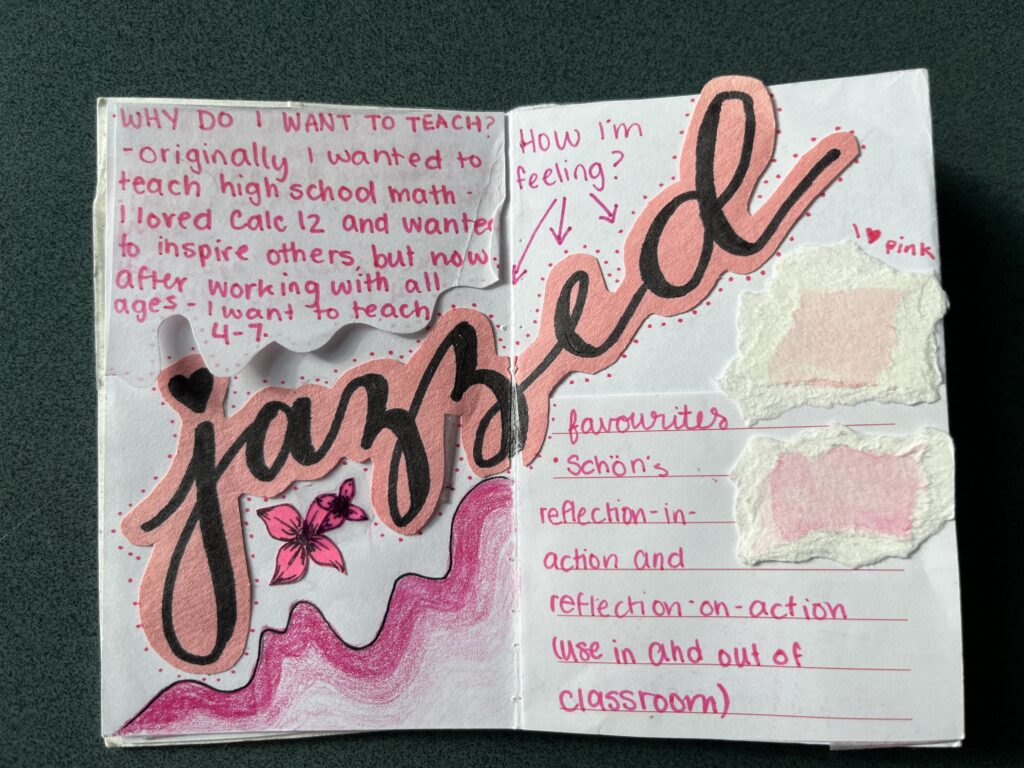 WHY DO I WANT TO TEACH?
- originally I wanted to
teach high school math -
I loved Calc 12 and wanted
to inspire others, but now
after working with all
ages - I want to teach
4-7
How I'm
feeling?
jazzed
I ♥ pink
favourites
· Schön's
reflection-in-
action and
reflection-on-action
(use in and out of
classroom)